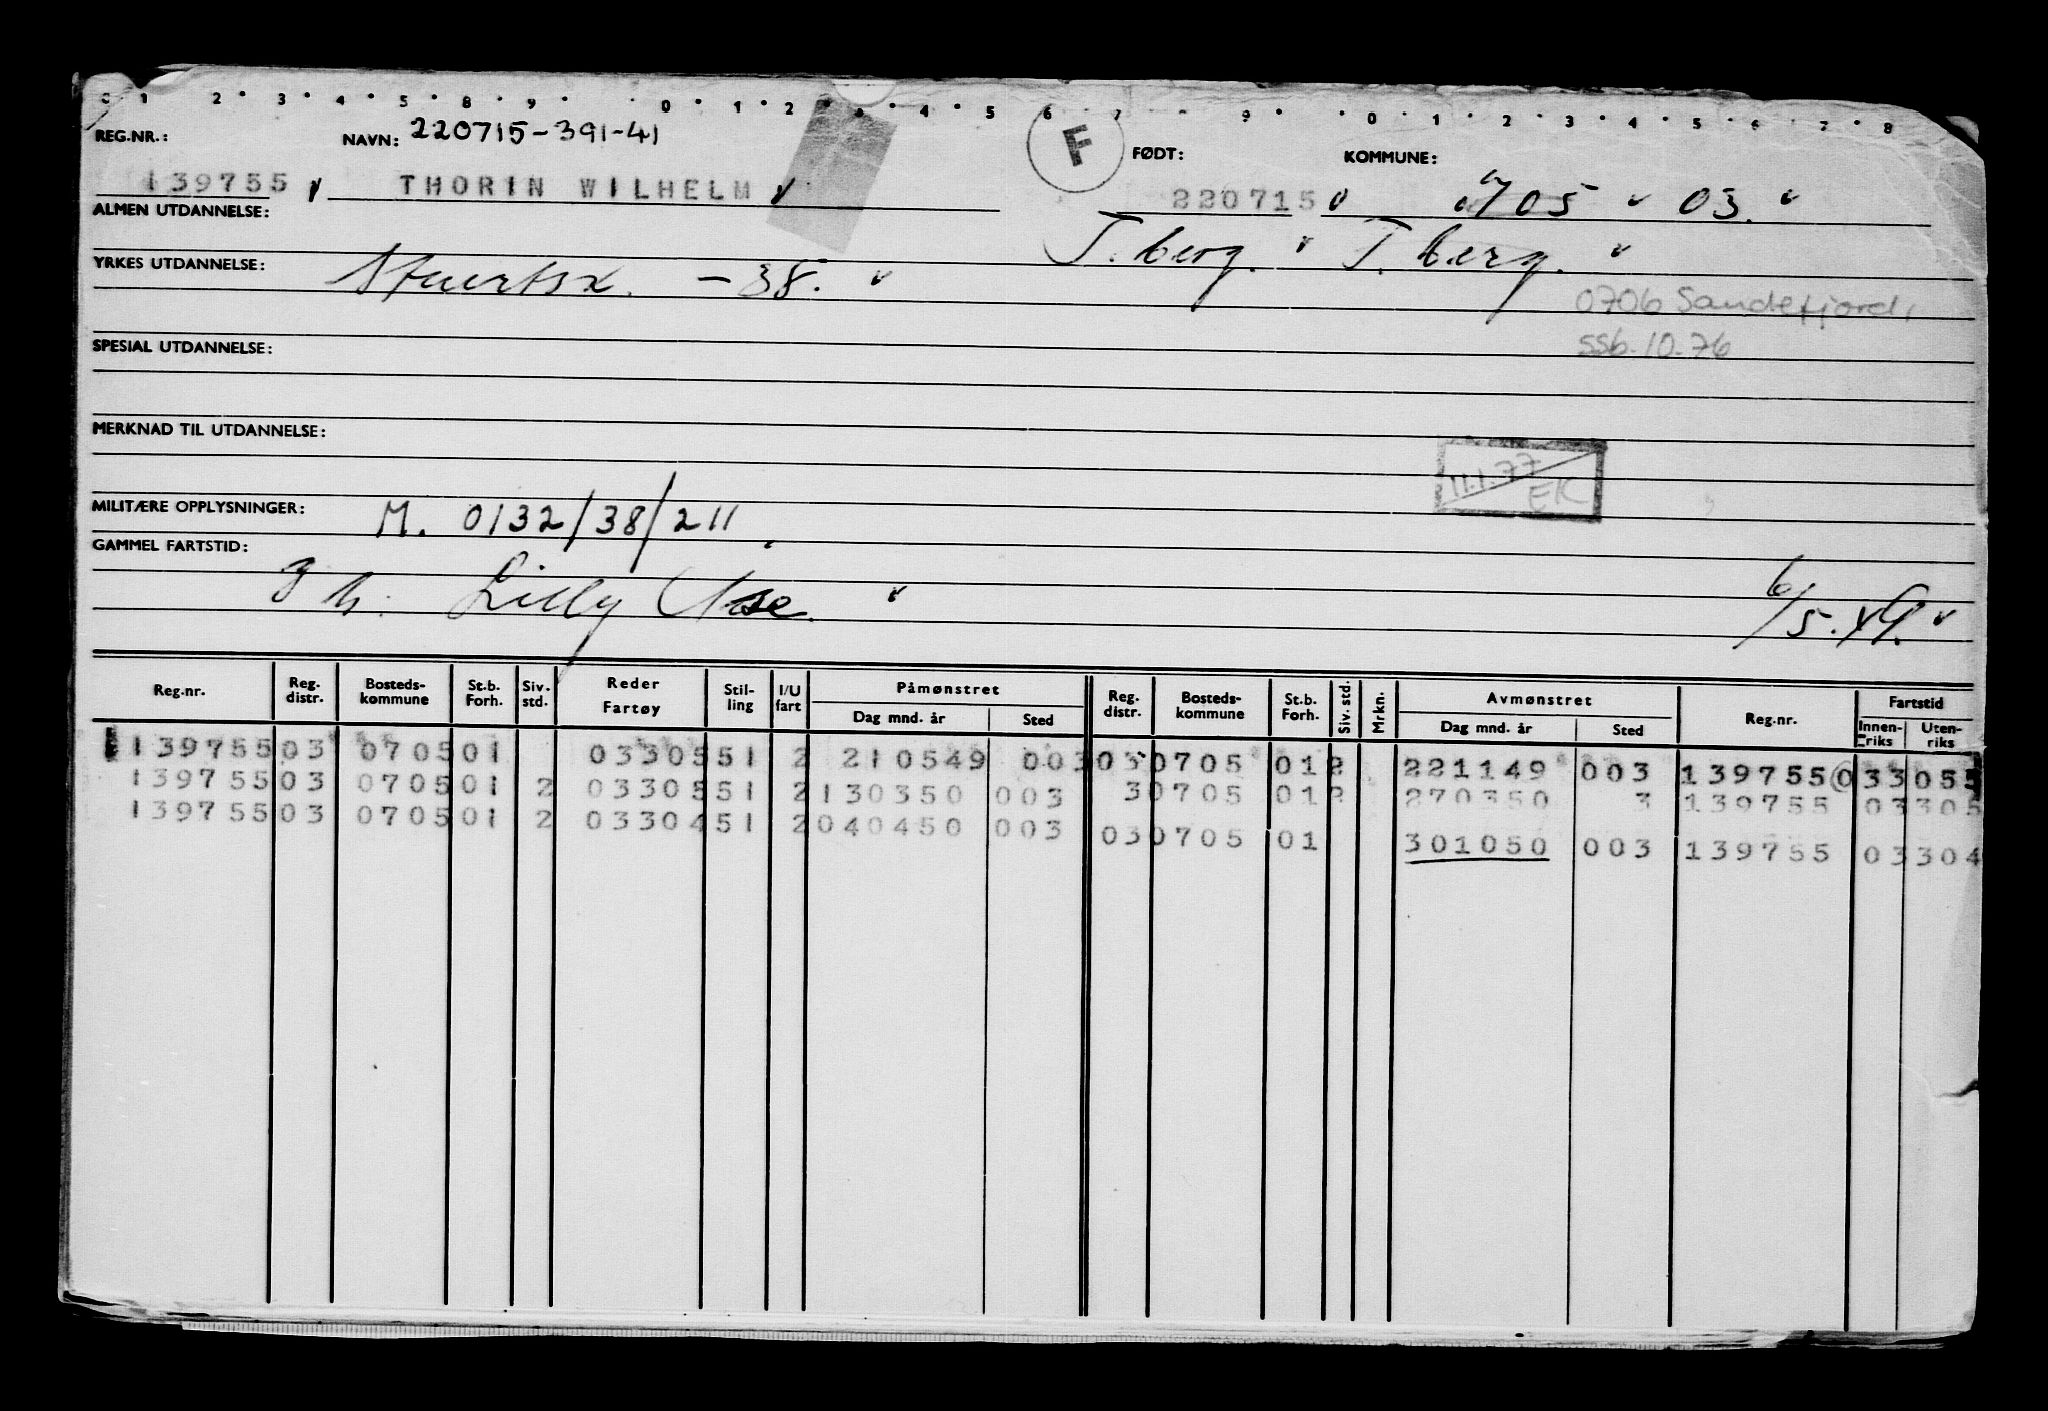 0 1 2 3 4 5 8 9 0 1 2 4 5 6 7 9 0 1 2 3 4 5 6 7 8
REG.NR.: NAVN: 220715-391-41 F FØDT: KOMMUNE:
139755 THORIN WILHELM 220715 0705 03.
ALMEN UTDANNELSE: T.berg. T.berg.
YRKES UTDANNELSE: Stuertsk. - 38.
0706 Sandefjord,
SPESIAL UTDANNELSE: ssb.10.76
MERKNAD TIL UTDANNELSE:
11.1.77 EK
MILITÆRE OPPLYSNINGER: M. 0132/38/211
GAMMEL FARTSTID:
Lilly Aase. 6/5.49.
Reg.nr. Reg. distr. Bosteds-kommune St.b. Forh. Siv. std. Reder Fartøy Stil-ling I/U fart Påmønstret Dag mnd. år Sted Reg. distr. Bosteds-kommune St.b. Forh. Siv. std. Mrkn. Avmønstret Dag mnd. år Sted Reg.nr. Fartstid Innen-riks Uten-riks
139755 03 0705 01 03305 51 2 210549 003 03 0705 01 2 221149 003 139755 03305
139755 03 0705 01 2 03305 51 2 130350 003 3 0705 01 2 270350 3 139755 03305
139755 03 0705 01 2 03304 51 2 040450 003 03 0705 01 301050 003 139755 03304